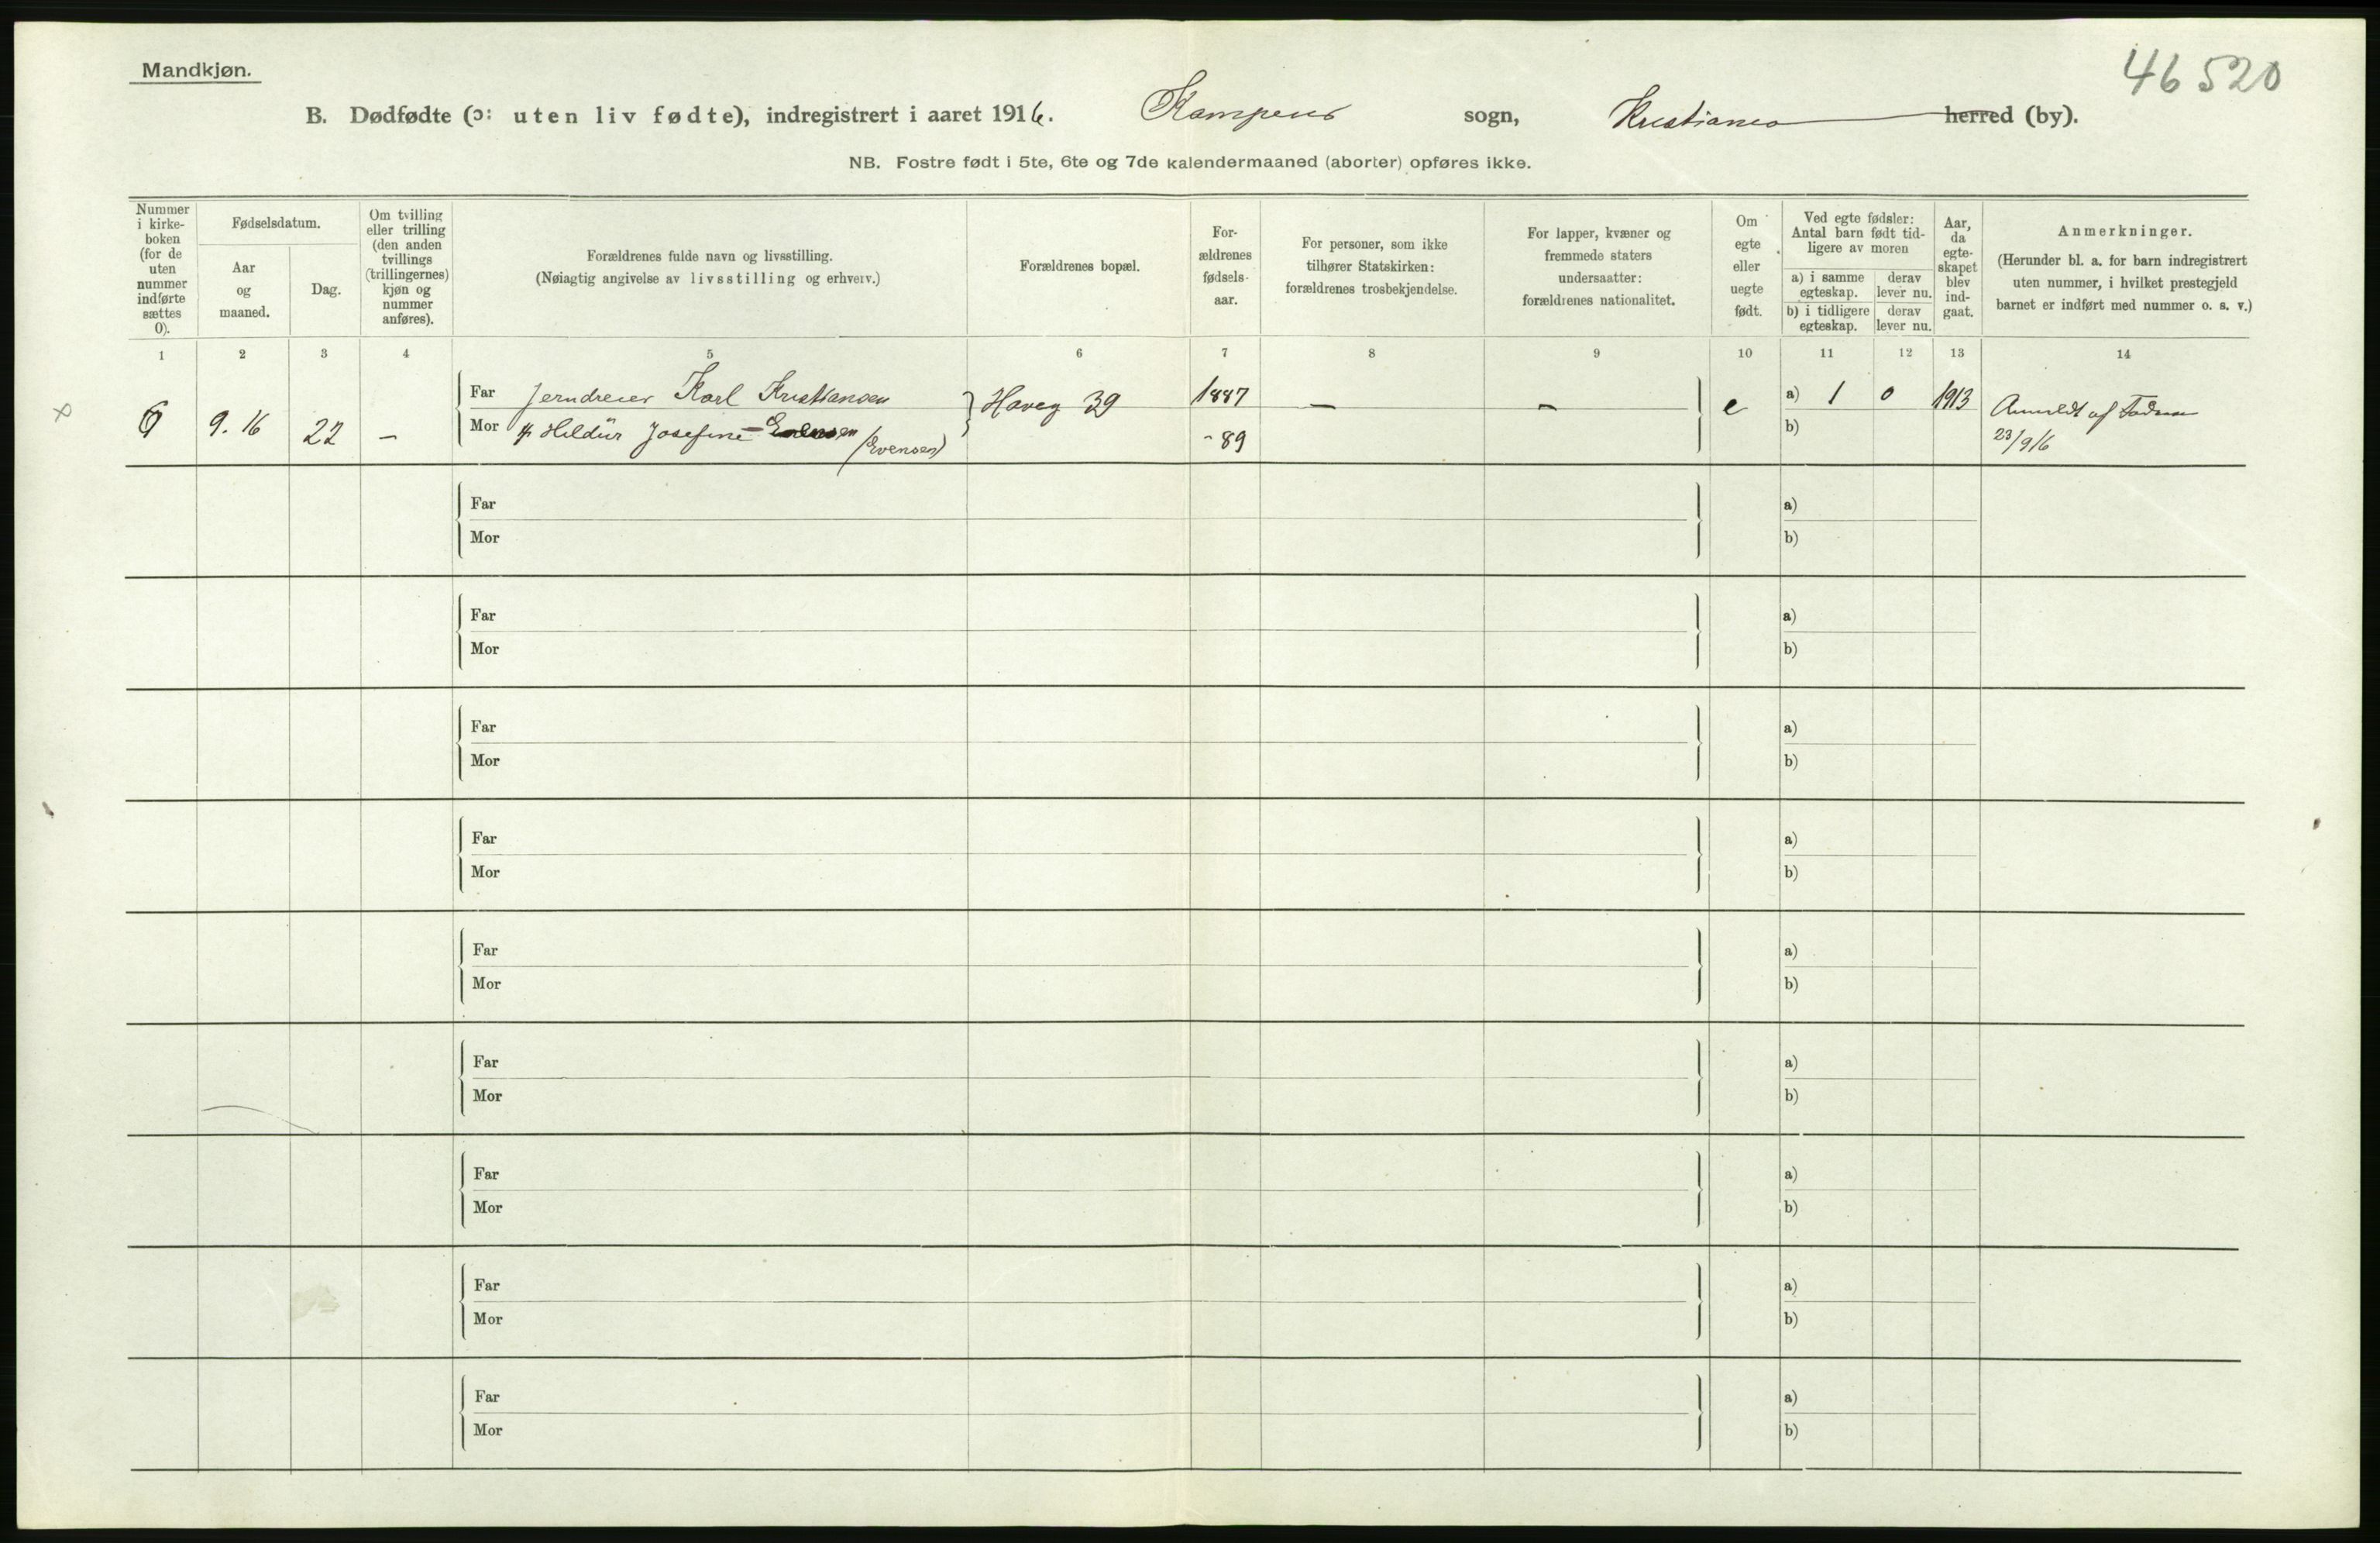 46 520
Mandkjøn.
B. Dødfødte (ɔ: uten liv fødte), indregistrert i aaret 1916. Kampens sogn, Kristiania herred (by).
NB. Fostre født i 5te, 6te og 7de kalendermaaned (aborter) opføres ikke.
Nummer i kirke-boken (for de uten nummer indførte sættes 0).
Fødselsdatum.
Aar og maaned.
Dag.
Om tvilling eller trilling (den anden tvillings (trillingernes) kjøn og nummer anføres).
Forældrenes fulde navn og livsstilling.
(Nøiagtig angivelse av livsstilling og erhverv.)
Forældrenes bopæl.
For-ældrenes fødsels-aar.
For personer, som ikke tilhører Statskirken: forældrenes trosbekjendelse.
For lapper, kvæner og fremmede staters undersaatter: forældrenes nationalitet.
Om egte eller uegte født.
Ved egte fødsler: Antal barn født tid-ligere av moren
a) i samme egteskap.
derav lever nu.
b) i tidligere egteskap.
derav lever nu.
Aar, da egte-skapet blev ind-gaat.
Anmerkninger.
(Herunder bl. a. for barn indregistrert uten nummer, i hvilket prestegjeld barnet er indført med nummer o. s. v.)
1 2 3 4 5 6 7 8 9 10 11 12 13 14
6 9. 16 22 –
Far Jerndreier Karl Kristiansen
Mor Hildur Josefine (Evensen)
Haveg 39
1887
- 89
– –
e
a) 1 0 1913
b)
Anmeldt af Fadren
23/9 16
Far a)
Mor b)
Far a)
Mor b)
Far a)
Mor b)
Far a)
Mor b)
Far a)
Mor b)
Far a)
Mor b)
Far a)
Mor b)
Far a)
Mor b)
Far a)
Mor b)